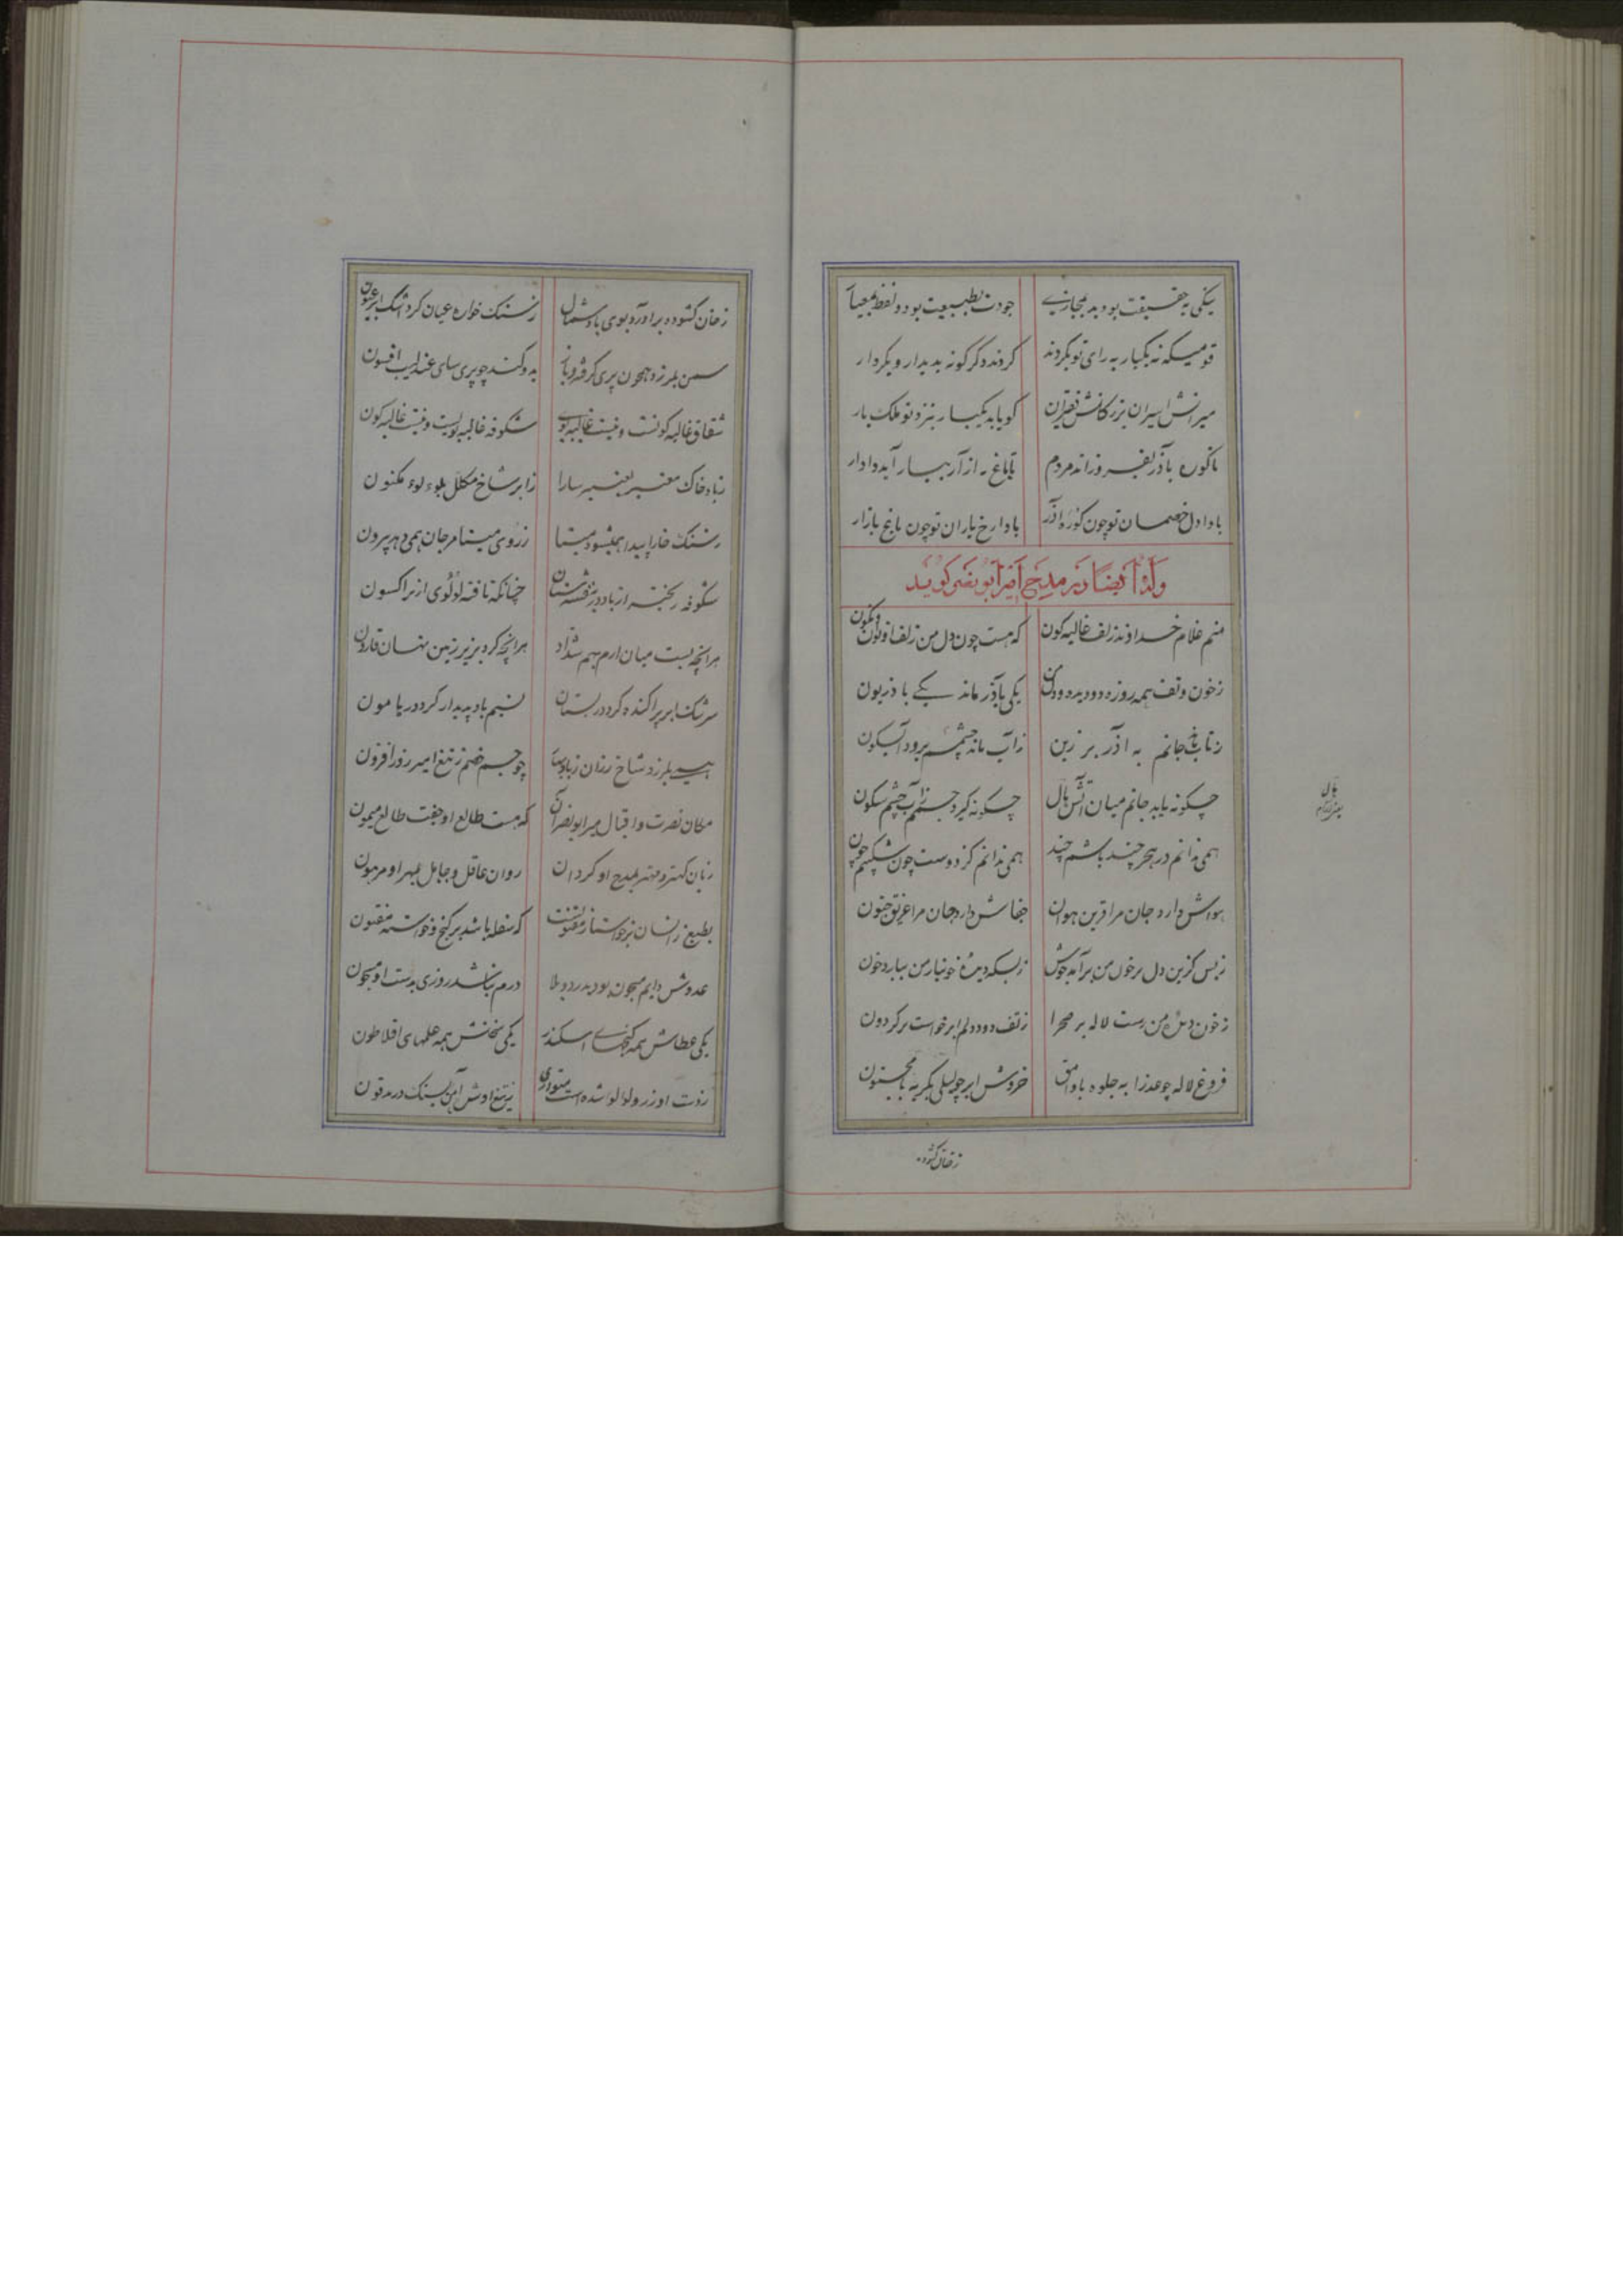 نیکی به حقیقت بود و بد بمجازی جودت بطبیعت بود و لفظ بمعیار
قومیکه نه یکبار به رای تو بگردند کردند دگرگونه بدیدار و بکردار
میرانش اسیران بزرگانش فقیران گویا به یکبار نیزد تو ملک بار
تا کوره باذر بفروزاند مردم تا باغ به ازار بیاراید دادار
بادا دل خصمان تو چون کوره اذر بادا رخ یاران تو چون باغ بازار
وله ایضا در مدح امیر ابونصر گوید
منم غلام خداوند زلف غالیه گون که هست چون دل من زلف او نوان و نگون
زخون و تف همه روزه دو دیده و دل من یکی باذر ماند یکی باذریون
زتاب ماند جانم به اذر برزین زآب ماند چشمم برود آبسکون
چگونه یابد جانم میان آتش هال چگونه گیرد چشمم زآب چشم سکون
هال بمعنی آرام
همی ندانم در هجر چند باشم چند همی ندانم کز دوست چون شکیبم چون
هواش دارد جان مرا قرین هوان جفاش دارد جان مرا غریق جنون
زبس کزین دل پرخون من برآمد جوش زبسکه دیدهٔ خونبار من ببارد خون
زخون دیدهٔ من رست لاله بر صحرا زتف دود دلم ابر خواست بر گردون
فروغ لاله چو عذرا به جلوه با وامق خروش ابر چو لیلی بگریه با مجنون
زخان گشوده
زخان گشوده برآورد بوی باد شمال زسنگ خواره عیان کرد اشک ابر عیون
سمن بلرزد همچون پری گرفته ز باد بدو کند چو پری سای عندلیب افسون
شقایق غالیه گونست و نیست غالیه بوی شکوفه غالیه بویست و نیست غالیه گون
زباد خاک معنبر بعنبر سارا زابر شاخ مکلل بلوء لوء مکنون
زسنگ خارا پیدا همیشود مینا زروی مینا مرجان همی دهد بیرون
شکوفه ریخته از باد در بنفشه ستان چنانکه تافته لوٴلوٴی از بر اکسون
هرانچه بست میان ارم بهم شداد هرانچه کرد بزیر زمین نهان قارون
سرشک ابر پراکنده کرد در بستان نسیم باد پدیدار کرد در هامون
همی بلرزد شاخ رزان زباد چو جسم خصم زتیغ امیر روز افزون
مکان نصرت و اقبال میر ابونصر آن که هست طالع او جفت طالع میمون
زبان کهتر و مهتر بمدح او گردان روان عاقل و جاهل بمهر او مرهون
بطبع زانسان بر خواستار مفتونست که سفله باشد بر گنج و خواسته مفتون
عدوش دایم مسجون بود بدرد و بلا درم نباشد روزی بدست او مسجون
یکی عطاش همه گنجهای اسکندر یکی سخانش همه علمهای افلاطون
زدست او زر و لولو شده است متواری زتیغ او شد آهن بسنگ در مدفون